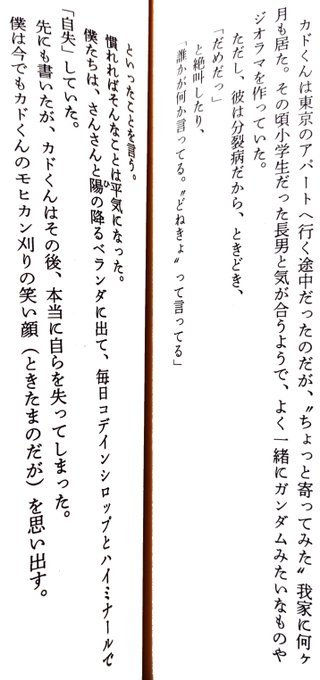 カドくんは東京のアパートへ行く途中だったのだが、〝ちょっと寄ってみた〟我家に何ヶ
月も居た。その頃小学生だった長男と気が合うようで、よく一緒にガンダムみたいなものや
ジオラマを作っていた。
ただし、彼は分裂病だから、ときどき、
「だめだっ」
と絶叫したり、
「誰かが何か言ってる。〝どねきよ〟って言ってる」
といったことを言う。
慣れればそんなことは平気になった。
僕たちは、さんさんと陽の降るベランダに出て、毎日コデインシロップとハイミナールで
「自失」していた。
先にも書いたが、カドくんはその後、本当に自らを失ってしまった。
僕は今でもカドくんのモヒカン刈りの笑い顔（ときたまのだが）を思い出す。